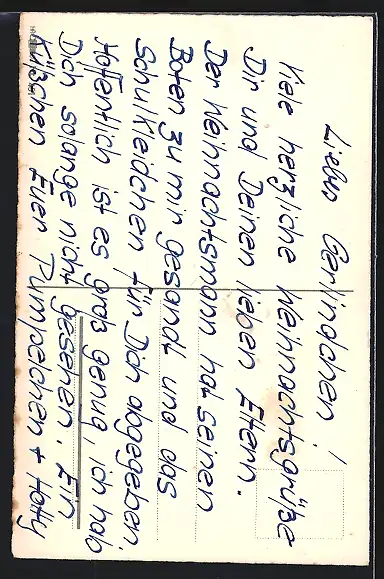 Liebes Gerlindchen!
Viele herzliche Weihnachtsgrüße
Dir und Deinen lieben Eltern.
Der Weihnachtsmann hat seinen
Boten zu mir gesandt und das
Schulkleidchen für Dich abgegeben,
Hoffentlich ist es groß genug, ich hab
Dich solange nicht gesehen. Ein
Küßchen Euer Pümpelchen +